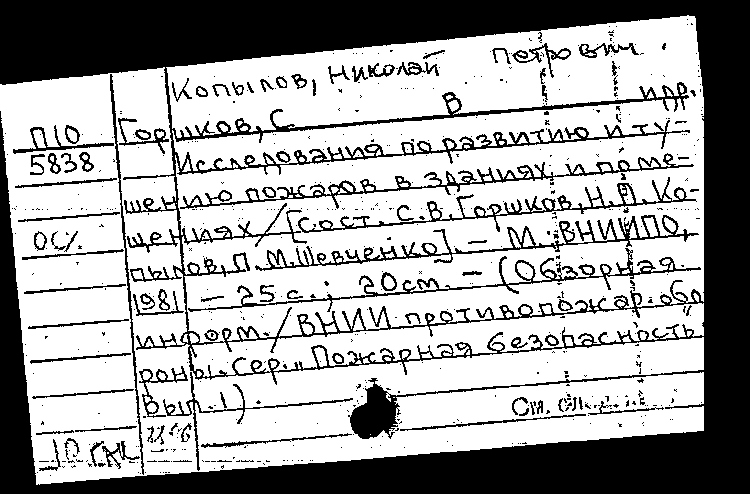 Копылов, Николай Петрович.
П10 Горшков, С В и др.
5838 Исследования по развитию и ту-
шению пожаров в зданиях и поме-
щениях / [Сост. С.В. Горшков, Н.П. Ко-
пылов, П.М. Шевченко]. – М.: ВНИИПО,
1981 – 25 с.; 20 см. – (Обзорная
информ. / ВНИИ противопожар. обо
роны. Сер. „Пожарная безопасность"
Вып. 1).
См. сл.